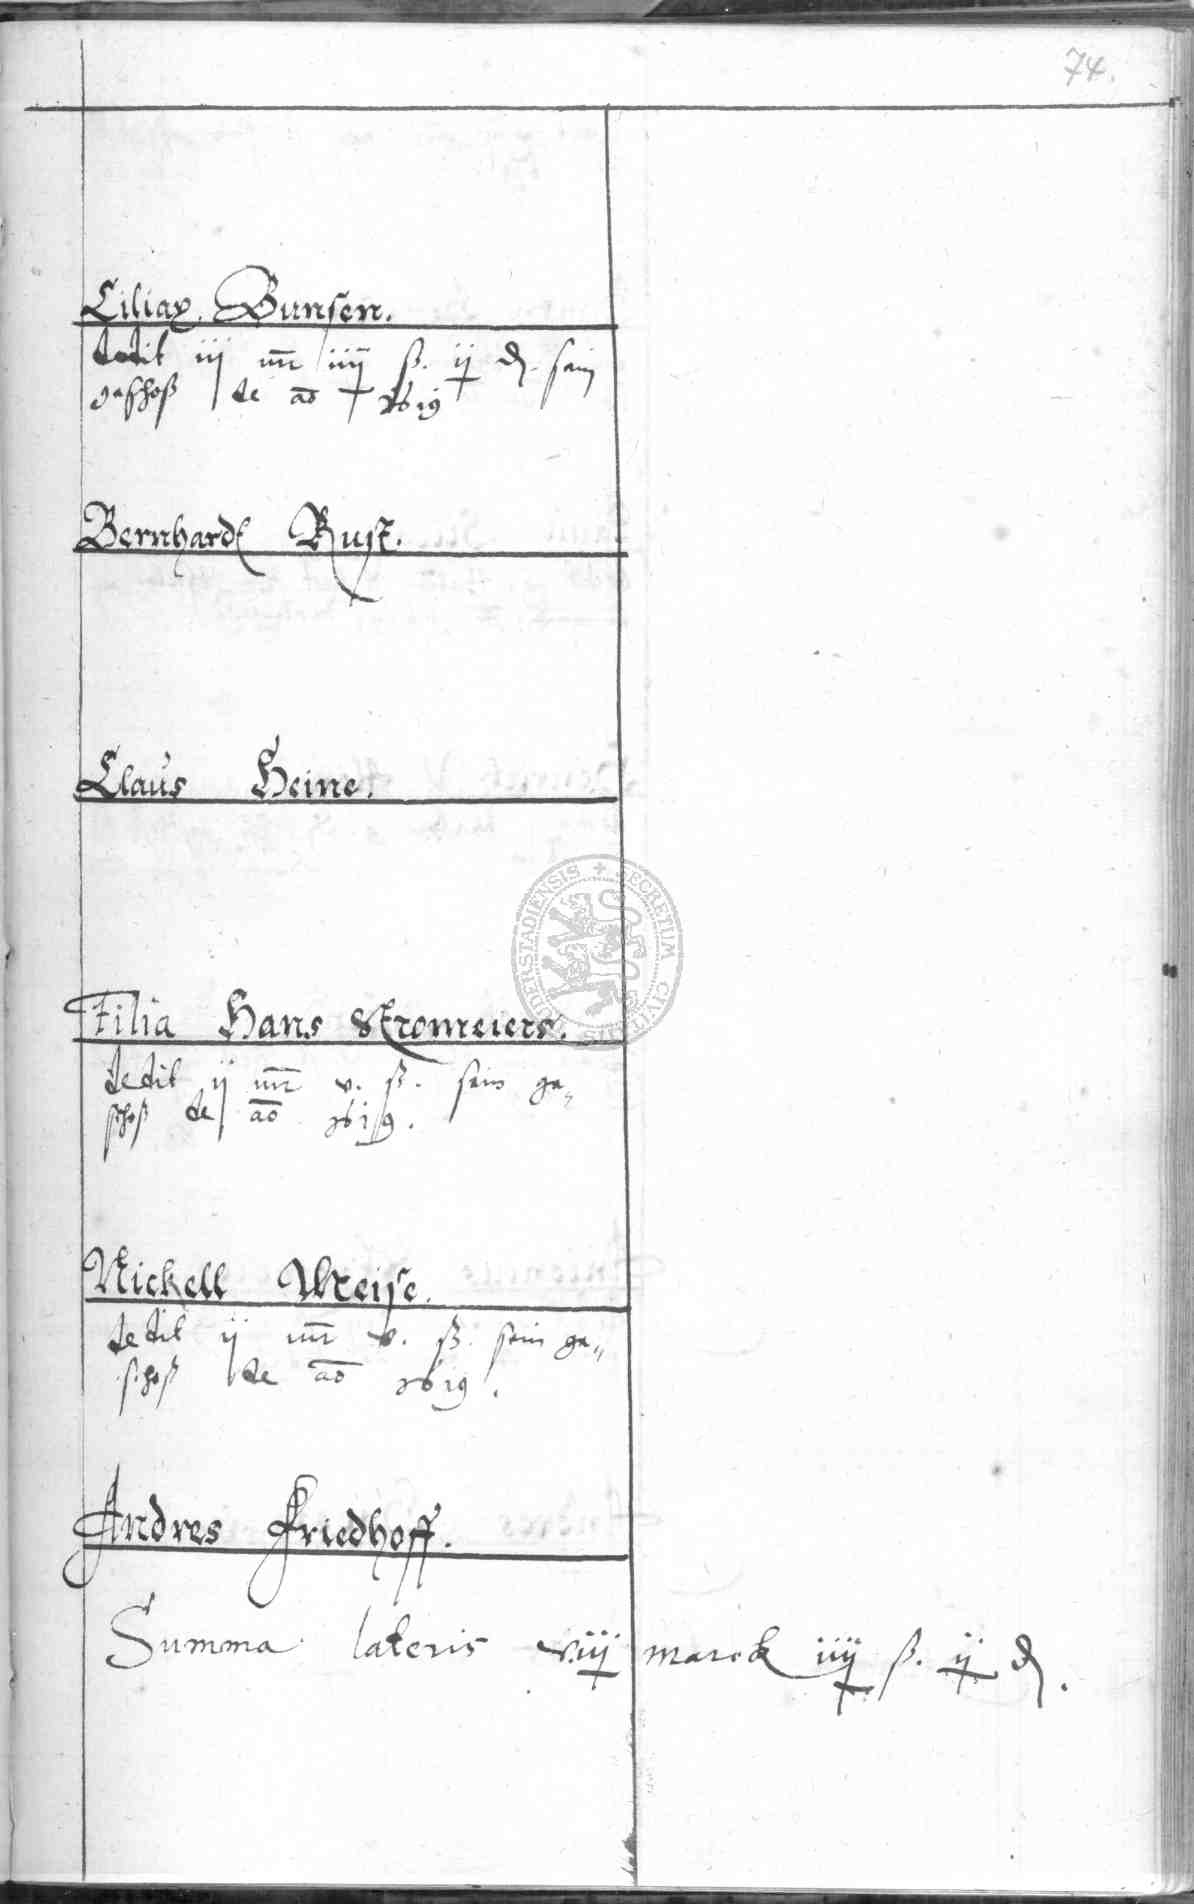 74.
Ciliax Bunsen.
dedit iij mr iiij ß. ij d. sein
geschoß de ao 1619
Bernhardt Rust.
Claus Heine.
Filia Hans Stromeiers.
dedit ij mr v. ß. sein ge„
schoß de ao 1619.
Nickell Weise.
dedit ij mr v. ß. sein ge„
schoß de ao 1619.
Andres Friedhoff.
Summa lateris viij marck iiij ß. ij d.
SECRETUM CIVITATIS DUDERSTADIENSIS